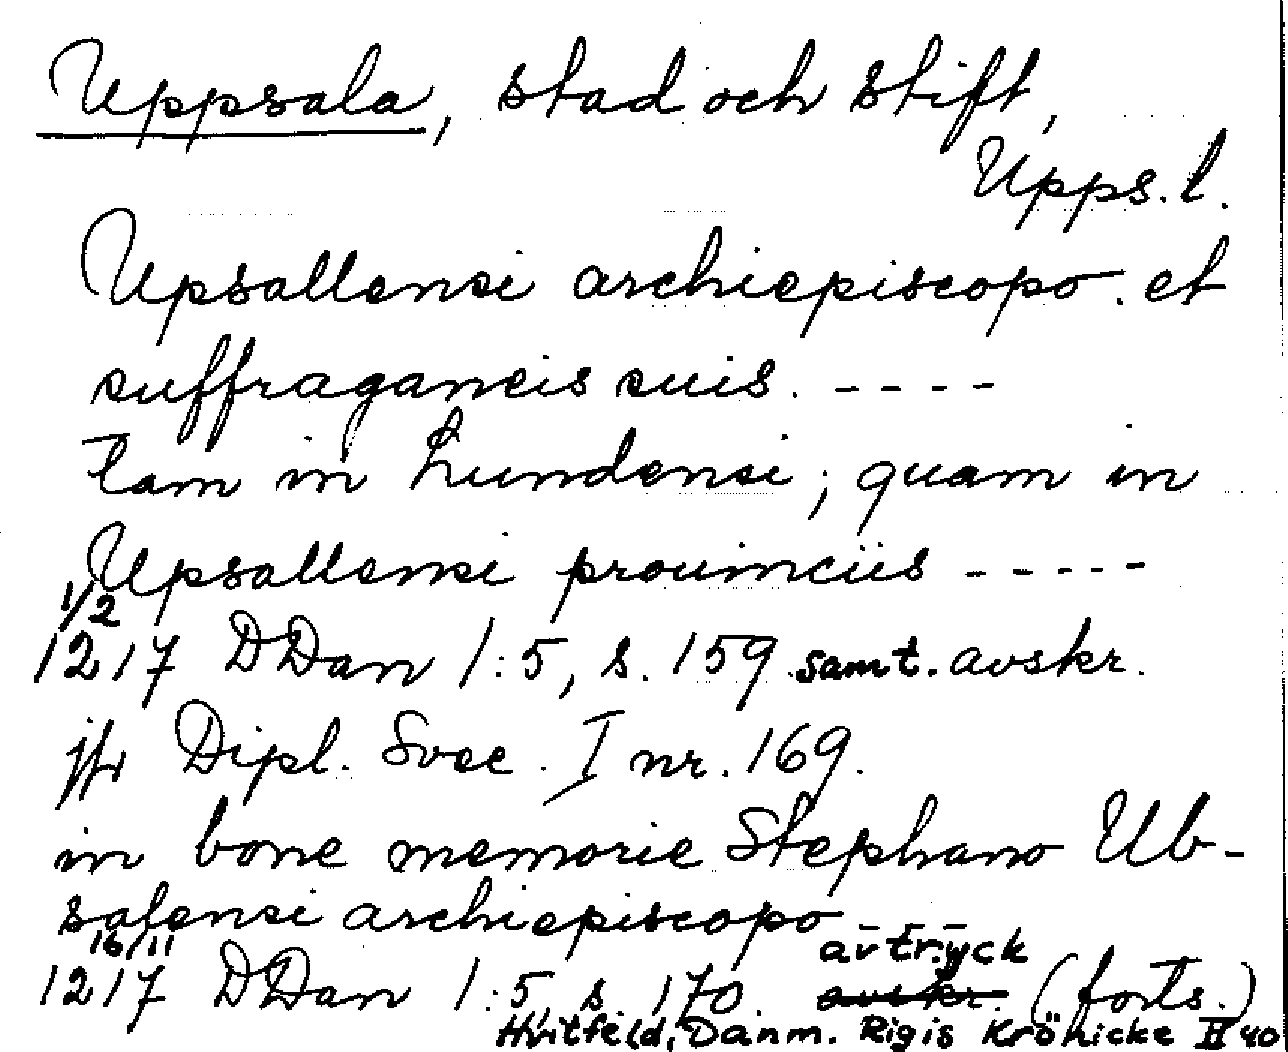 Uppsala, stad och stift,
Upps. l.
Upsallensi archiepiscopo et
suffraganeis suis. ----
Tam in Lundensi, quam in
Upsallensi prouinciis -----
1/2
1217 DDan 1:5, s. 159 samt. avskr.
jfr Dipl. Svec. I nr. 169.
in bone memorie Stephano Ub-
salensi archiepiscopo ---
16/11 avtryck
1217 DDan 1:5, s. 170 avskr. (forts.)
Hvitfeld, Danm. Rigis Krönicke II 40